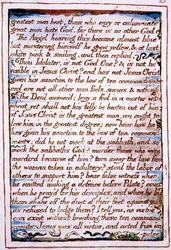 greatest men best, those who envy or calumniate
great men hate God, for there is no other God.
The Angel hearing this became almost blue
but mastering himself he grew yellow, & at last
white pink & smiling, and then replied,
Thou Idolater, is not God One? & is not he
visible in Jesus Christ? and has not Jesus Christ
given his sanction to the law of ten commandments
and are not all other men fools, sinners, & nothings?
The Devil answer'd; bray a fool in a morter with
wheat, yet shall not his folly be beaten out of him:
if Jesus Christ is the greatest man, you ought to
love him in the greatest degree; now hear how he
has given his sanction to the law of ten command-
ments: did he not mock at the sabbath, and so
mock the sabbaths God? murder those who were
murderd because of him? turn away the law from
the woman taken in adultery? steal the labor of
others to support him? bear false witness when
he omitted making a defence before Pilate? covet
when he pray'd for his disciples, and when he bid
them shake off the dust of their feet against such
as refused to lodge them? I tell you, no virtue
can exist without breaking these ten command-
ments: Jesus was all virtue, and acted from im-